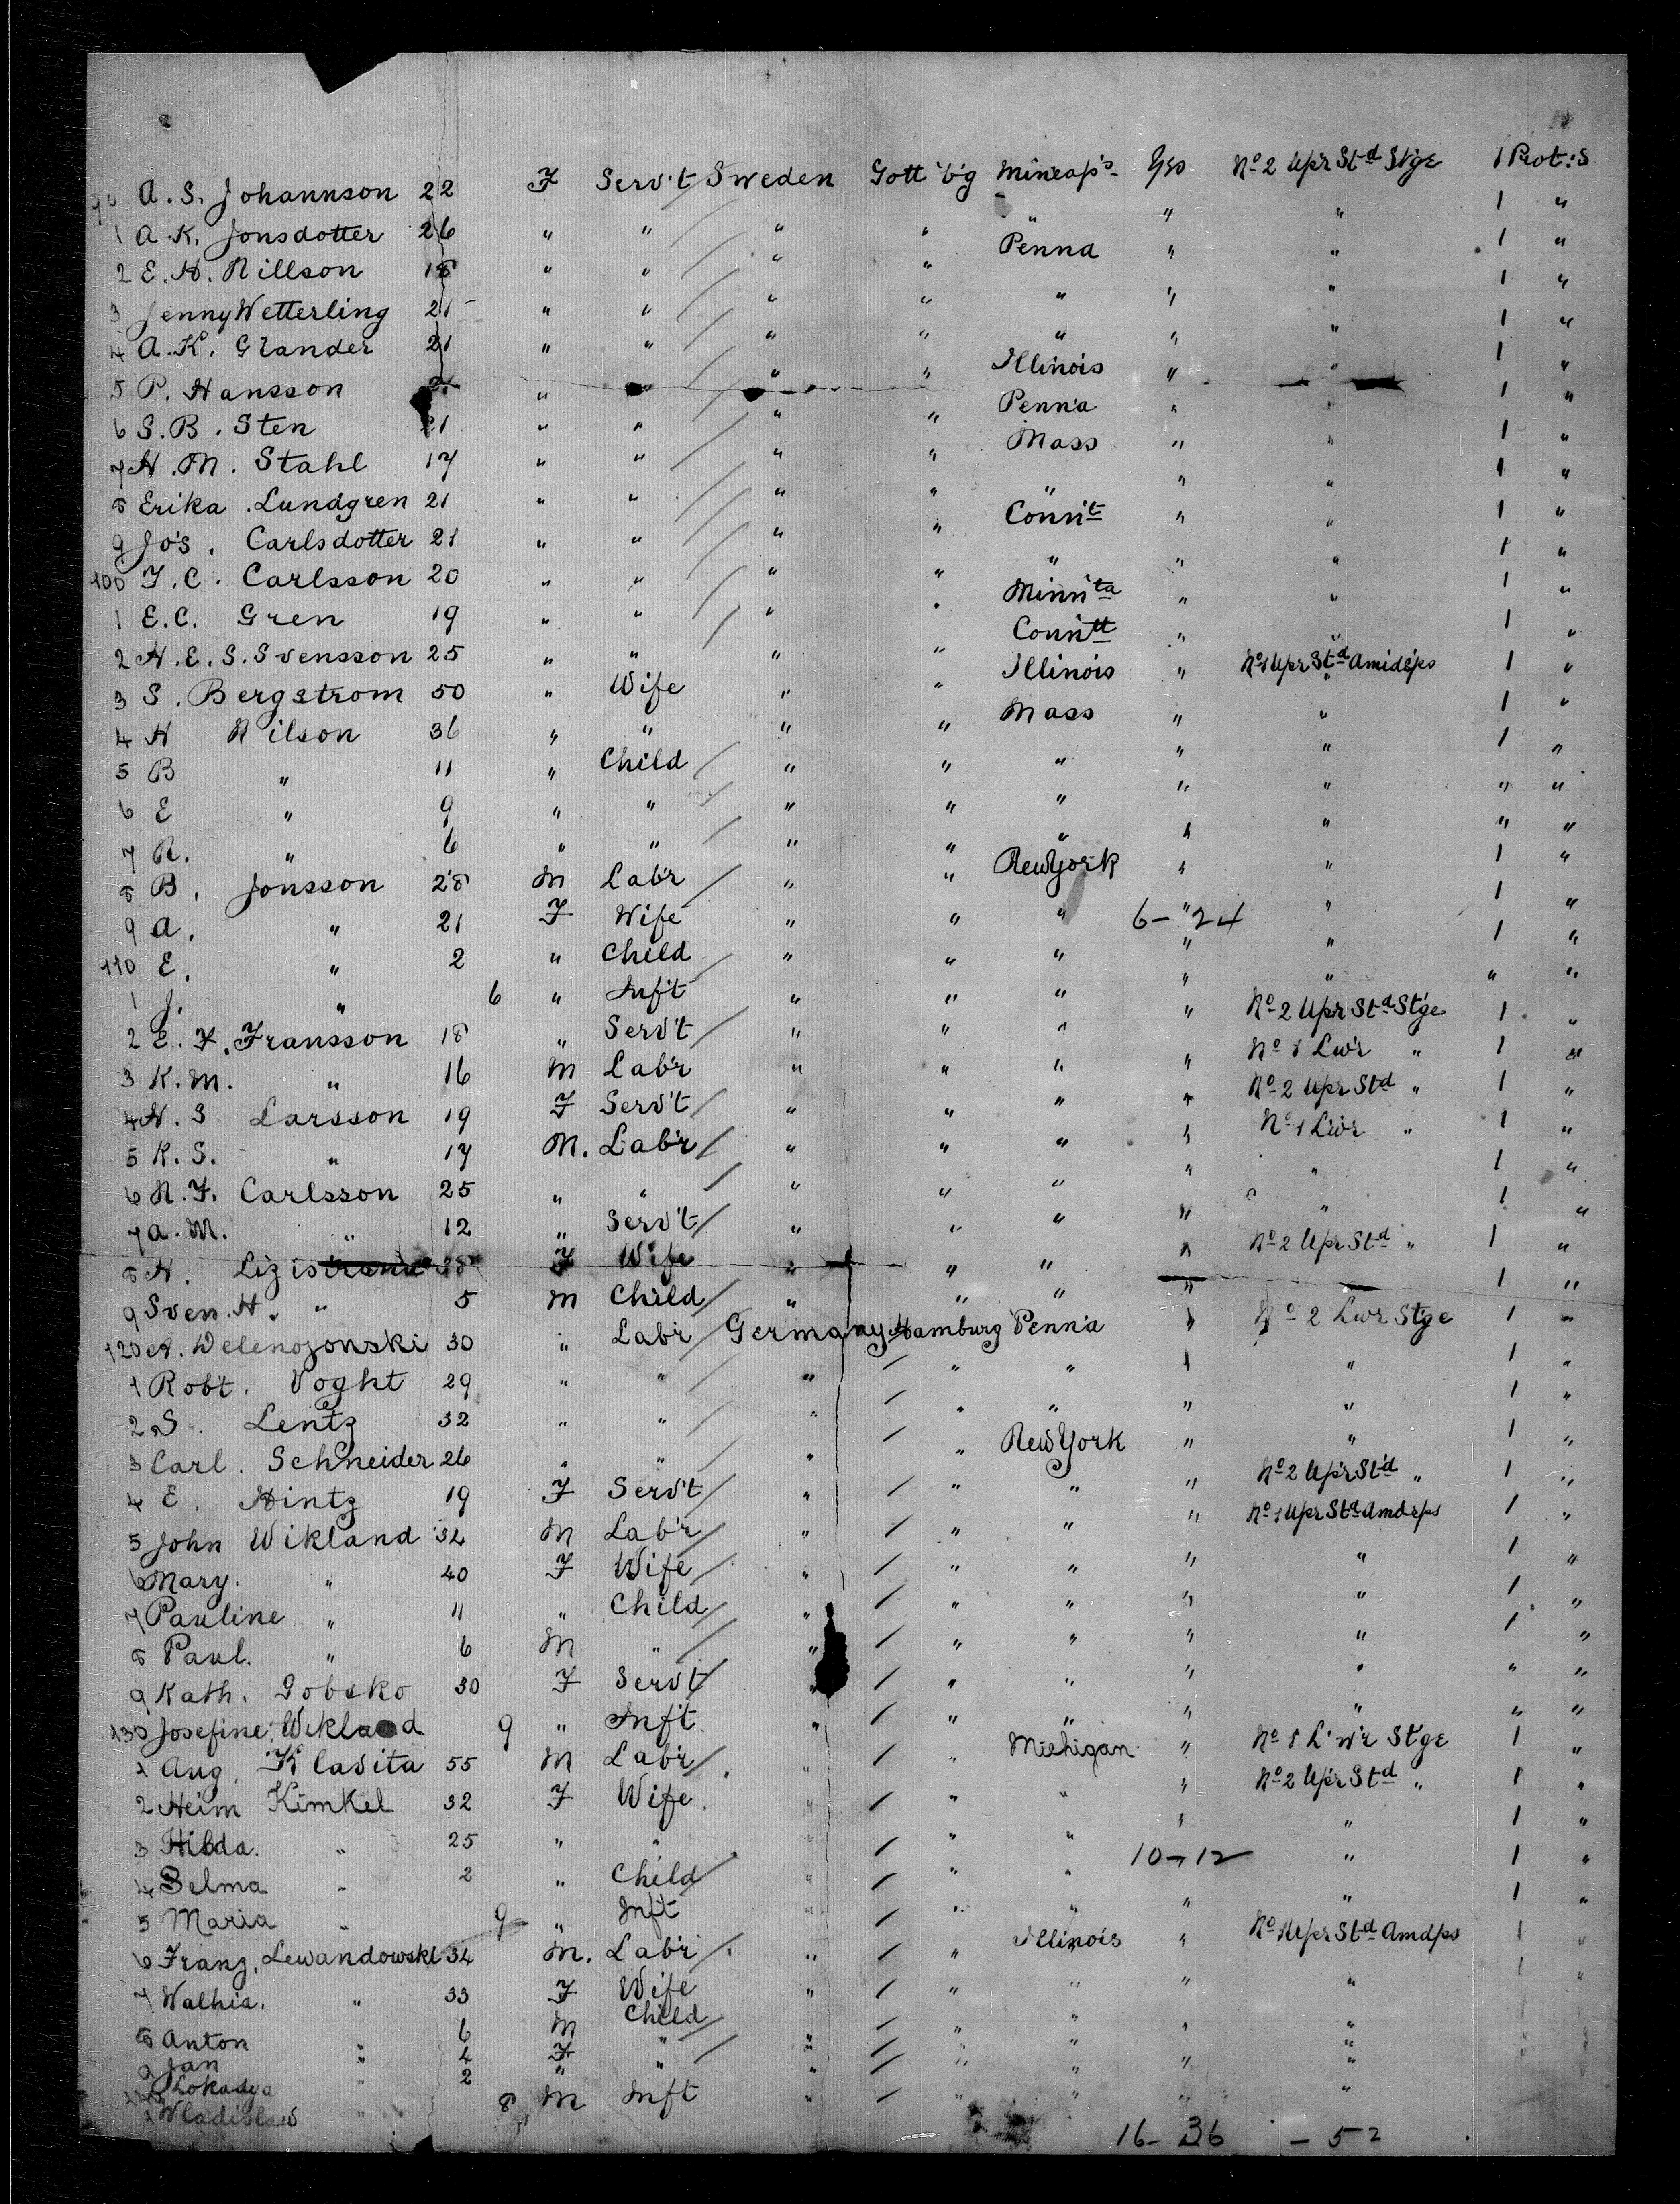 90 A. S. Johannson 22 F Serv't Sweden Gott'b'g Mineap's Yes No 2 Upr Std Stge 1 Prot:s
1 A. K. Jonsdotter 26 " " " " " " " 1 "
2 E. H. Nillson 18 " " " " Penna " " 1 "
3 Jenny Wetterling 21 " " " " " " " 1 "
4 A. K. Glander 21 " " " " " " " 1 "
5 P. Hansson " " " " Illinois " " 1 "
6 S. B. Sten 21 " " " " Penn'a " " 1 "
7 H. M. Stahl 17 " " " " Mass " " 1 "
8 Erika Lundgren 21 " " " " " " " 1 "
9 Jo's. Carlsdotter 21 " " " " Conn't " " 1 "
100 F. C. Carlsson 20 " " " " " " " 1 "
1 E. C. Gren 19 " " " " Minn'ta " " 1 "
2 H. E. S. Svensson 25 " " " " Conn'tt " " 1 "
3 S. Bergstrom 50 " Wife " " Illinois " No 1 Upr Std Amidsps 1 "
4 H Nilson 36 " " " " Mass " " 1 "
5 B " 11 " Child " " " " " 1 "
6 E " 9 " " " " " " " " "
7 R. " 6 " " " " " " " " "
8 B. Jonsson 28 M Lab'r " " New York " " 1 "
9 A. " 21 F Wife " " " 6-24 " 1 "
110 E. " 2 " Child " " " " " 1 "
1 J. " 6 " Inf't " " " " " " "
2 E. F. Fransson 18 " Serv't " " " " No 2 Upr Std Stge 1 "
3 K. M. " 16 M Lab'r " " " " No 1 Lw'r " 1 "
4 H. S Larsson 19 F Serv't " " " " No 2 Upr Std " 1 "
5 K. S. " 17 M. Lab'r " " " " No 1 Lw'r " 1 "
6 N. F. Carlsson 25 " " " " " " " 1 "
7 A. M. " 12 " Serv't " " " " " 1 "
8 H. 38 F Wife " " " " No 2 Upr Std " 1 "
9 Sven. H. " 5 M Child " " " " 1 "
120 A. Welenojonski 30 " Lab'r Germany Hamburg Penn'a " No 2 Lwr Stge 1 "
1 Rob't. Voght 29 " " " " " " " 1 "
2 S. Lentz 32 " " " " " " " 1 "
3 Carl. Schneider 26 " " " " New York " " 1 "
4 E. Hintz 19 F Serv't " " " " No 2 Up'r St'd " 1 "
5 John Wikland 34 M Lab'r " " " " No 1 Upr Std Amdsps 1 "
6 Mary. " 40 F Wife " " " " " 1 "
7 Pauline " 11 " Child " " " " " 1 "
8 Paul. " 6 M " " " " " " 1 "
9 Kath. Gobsko 30 F Serv't " " " " " " "
130 Josefine Wikland 9 " Inf't " " " " " " "
1 Aug. Klavita 55 M Lab'r " " Michigan " No 1 L'w'r Stge 1 "
2 Heim Kimkel 32 F Wife " " " " No 2 Up'r Std " 1 "
3 Hilda. " 25 " " " " " " " 1 "
4 Selma " 2 " Child " " " 10-12 " 1 "
5 Maria " 9 " Inf't " " " " " 1 "
6 Franz. Lewandowski 34 M. Lab'r " " Illinois " No 1 Upr Std Amdps 1 "
7 Walhia. " 33 F Wife " " " " " 1 "
8 Anton " 6 M Child " " " " "
9 Jan " 4 F " " " " " "
140 Lokadya " 2 " " " " " "
1 Wladislaw " 8 M Inft " " " " "
16-36 - 52